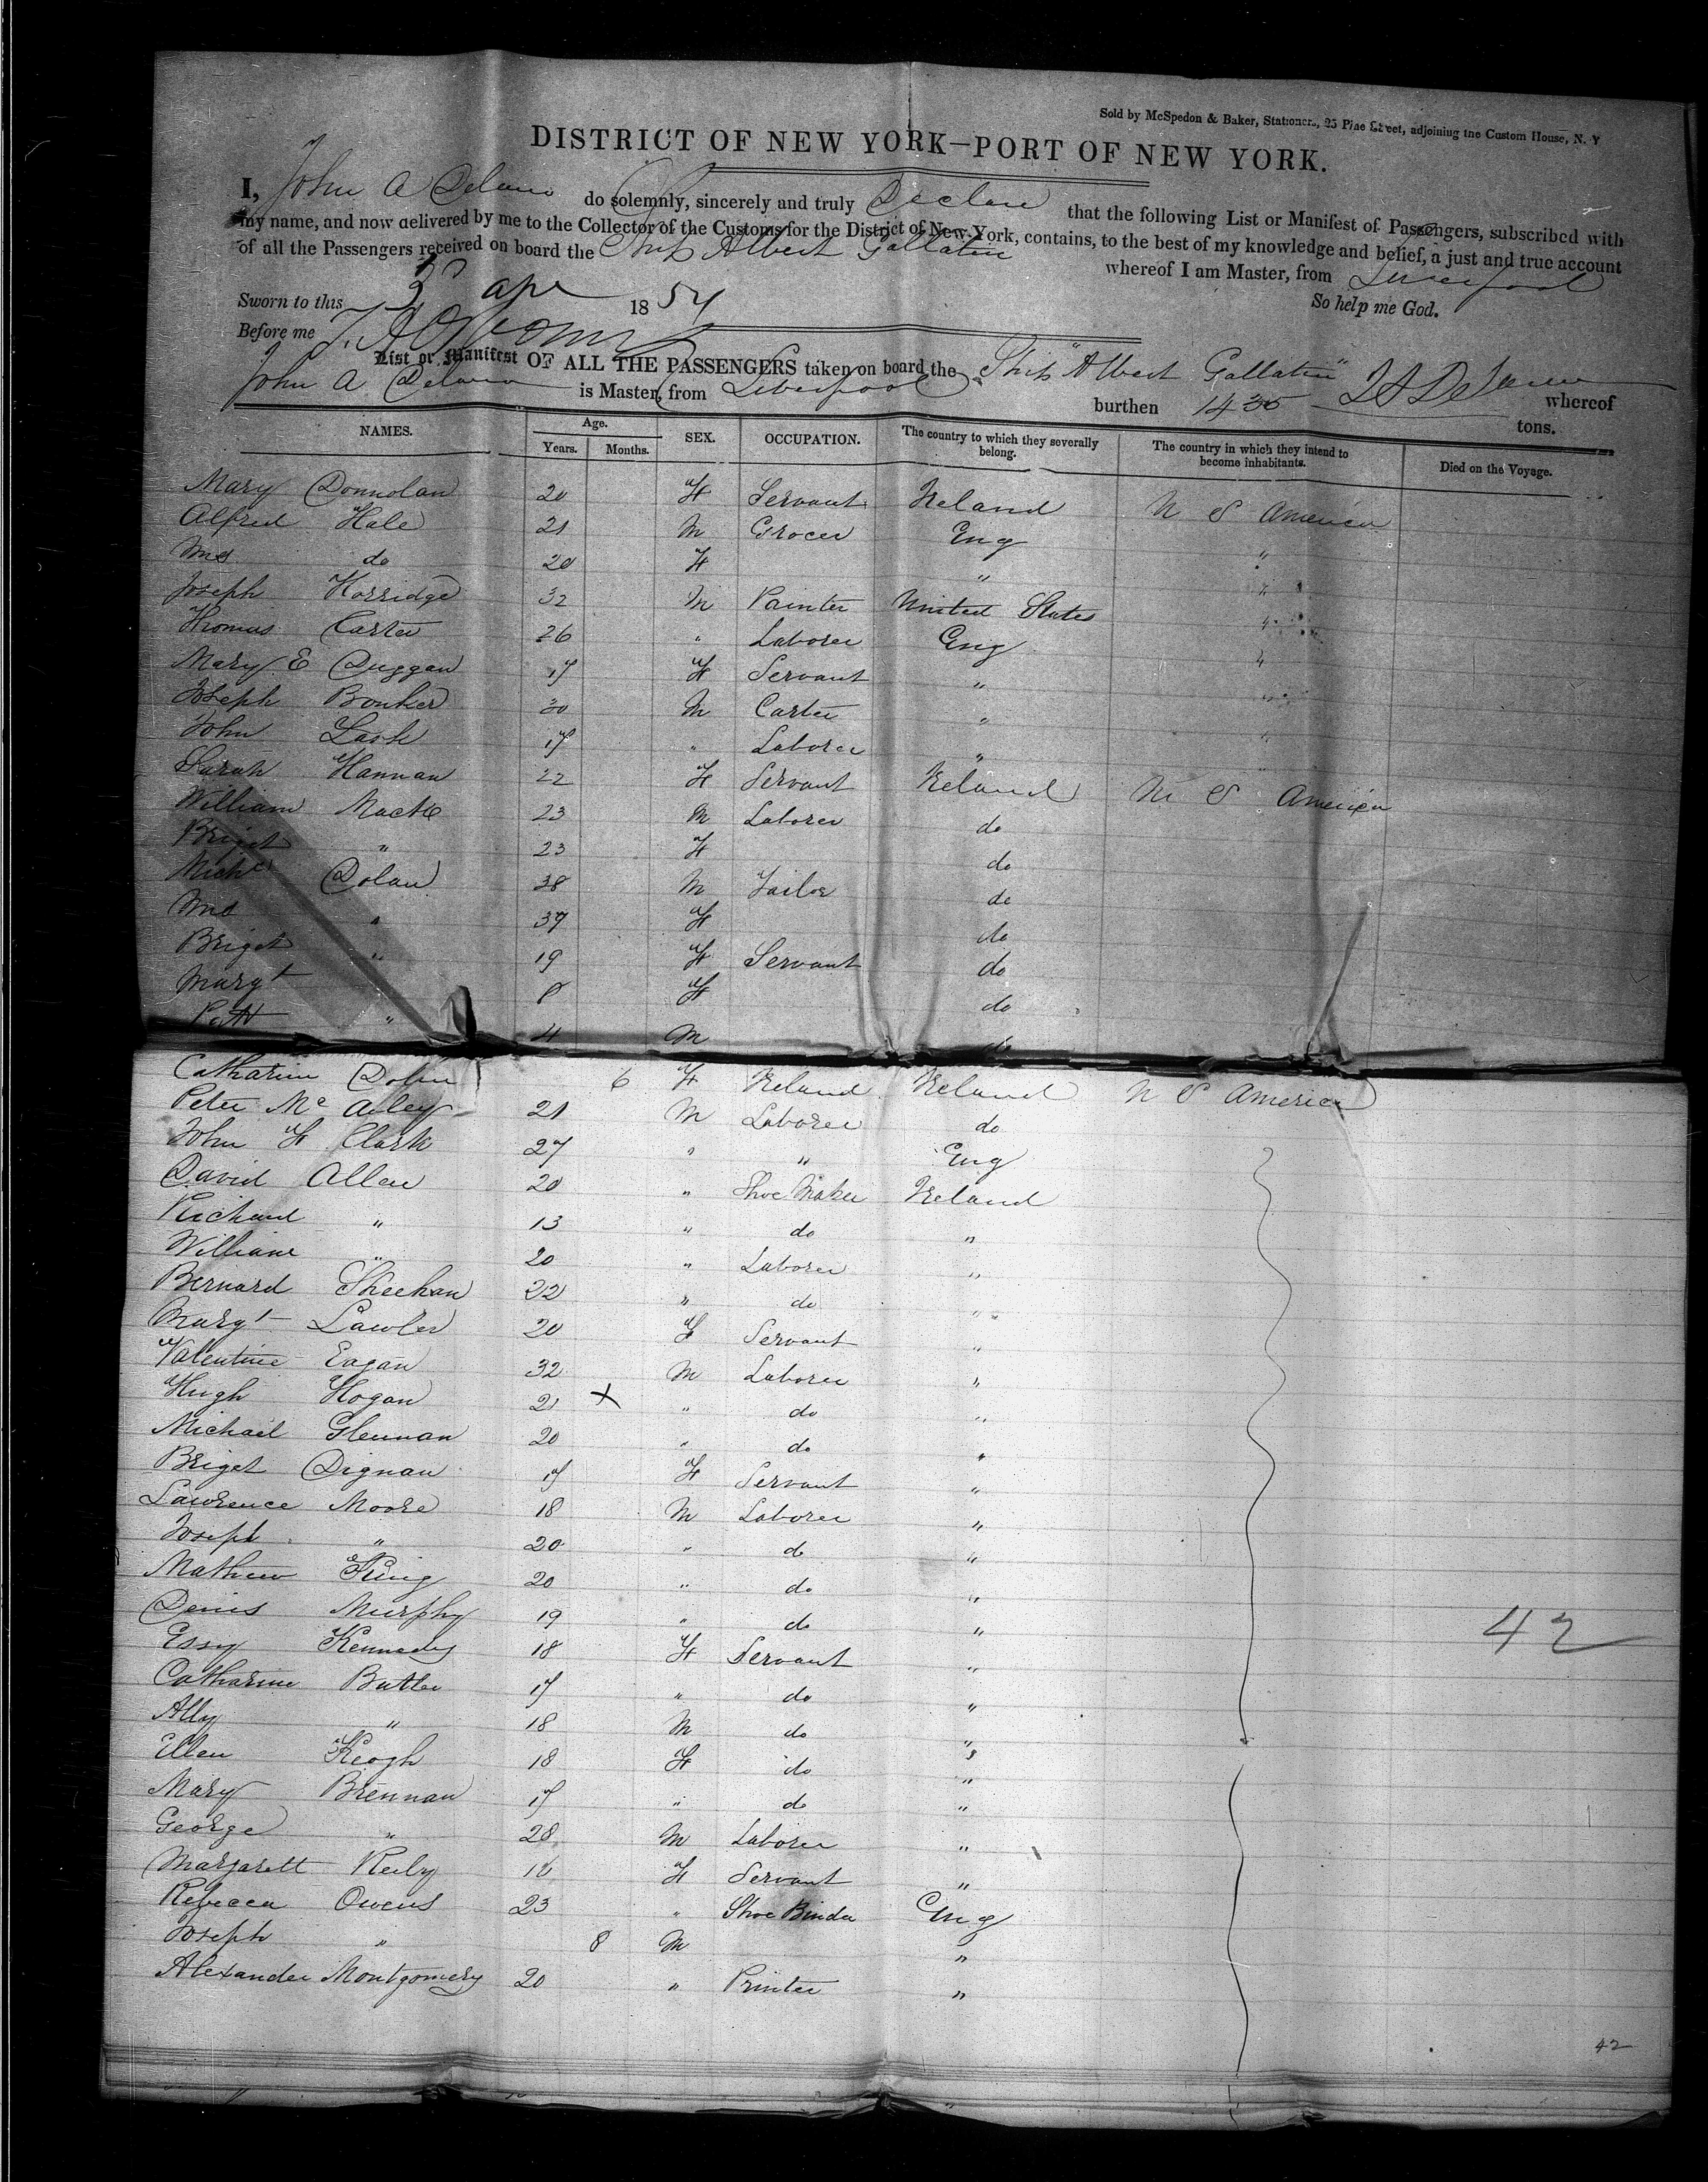 Sold by McSpedon & Baker, Stationers, 25 Pine Street, adjoining the Custom House, N. Y
DISTRICT OF NEW YORK—PORT OF NEW YORK.
I, John A Delano do solemnly, sincerely and truly Declare that the following List or Manifest of Passengers, subscribed with
my name, and now delivered by me to the Collector of the Customs for the District of New York, contains, to the best of my knowledge and belief, a just and true account
of all the Passengers received on board the Ship Albert Gallatin whereof I am Master, from Liverpool
So help me God.
Sworn to this 3 apr 1854
Before me
List or Manifest OF ALL THE PASSENGERS taken on board the Ship "Albert Gallatin" whereof
John A Delano is Master, from Liverpool burthen 1435 tons.
NAMES. Age. Years. Months. SEX. OCCUPATION. The country to which they severally belong. The country in which they intend to become inhabitants. Died on the Voyage.
Mary Donnolan 20 F Servant Ireland N S America
Alfred Hale 21 M Grocer Eng "
Mrs do 20 F " "
Joseph Horridge 32 M Painter United States "
Thomas Carter 26 " Laborer Eng "
Mary E Duggan 17 F Servant " "
Joseph Bonker 30 M Carter " "
John Lash 17 " Laborer "
Sarah Hannan 22 F Servant Ireland N S America
William Mack 23 M Laborer do
Briget " 23 F do
Michl Dolan 38 M Tailor do
Mrs " 37 F do
Briget " 19 F Servant do
Margt 8 F do
Patt " 4 M do
Catharine Dolan 6 F Ireland Ireland N S America
Peter Mc Auley 21 M Laborer do
John F Clark 27 " " Eng
David Allen 20 " Shoe Maker Ireland
Richard " 13 " do "
William " 20 " Laborer "
Bernard Sheehan 22 " do "
Margt Lawler 20 F Servant "
Valentine Eagan 32 M Laborer "
Hugh Hogan 21 X " do "
Michael Glennan 20 " do "
Briget Dignan 17 F Servant "
Lawrence Moore 18 M Laborer "
Joseph " 20 " do "
Mathew King 20 " do "
Denis Murphy 19 " do "
42
Essy Kennedy 18 F Servant "
Catharine Butler 17 " do "
Ally " 18 M do "
Ellen Keogh 18 F do "
Mary Brennan 17 " do "
George " 28 M Laborer "
Margarett Reily F Servant "
Rebecca Owens 23 " Shoe Binder Eng
Joseph " 8 M "
Alexander Montgomery 20 " Printer "
42